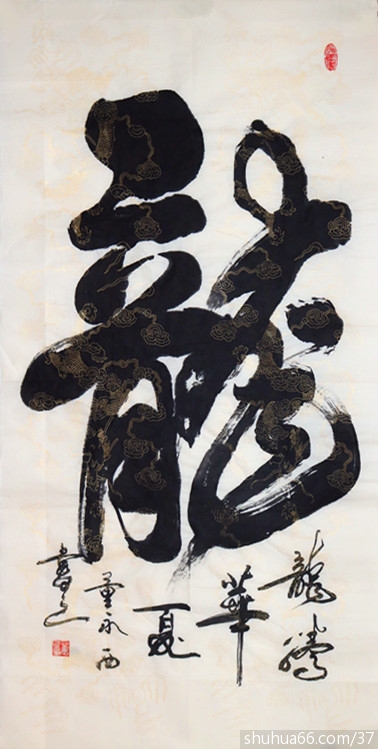 龍
龍騰
華
夏
董永西
書
shuhua66.com/37